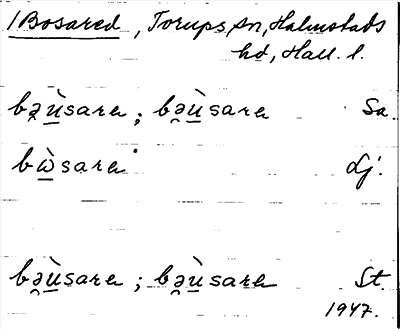 /Bosared, Torups sn, Halmstads
hd, Hall. l.
bə̯ù̲sarɐ; bə̯ù̲sarɐ Sa
bὼ̲sarɐ Lj.
bə̯ù̲sarɐ; bə̯ù̲sarɐ St.
1947.